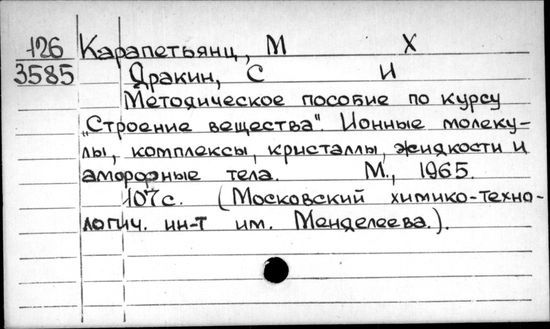 126 Карапетьянц, М Х
3585 Дракин, С И
Методическое пособие по курсу
„Строение вещества". Ионные молеку-
лы, комплексы, кристаллы, жидкости и
аморфные тела. М., 1965.
107с. (Московский химико-техно-
логич. ин-т им. Менделеева.).